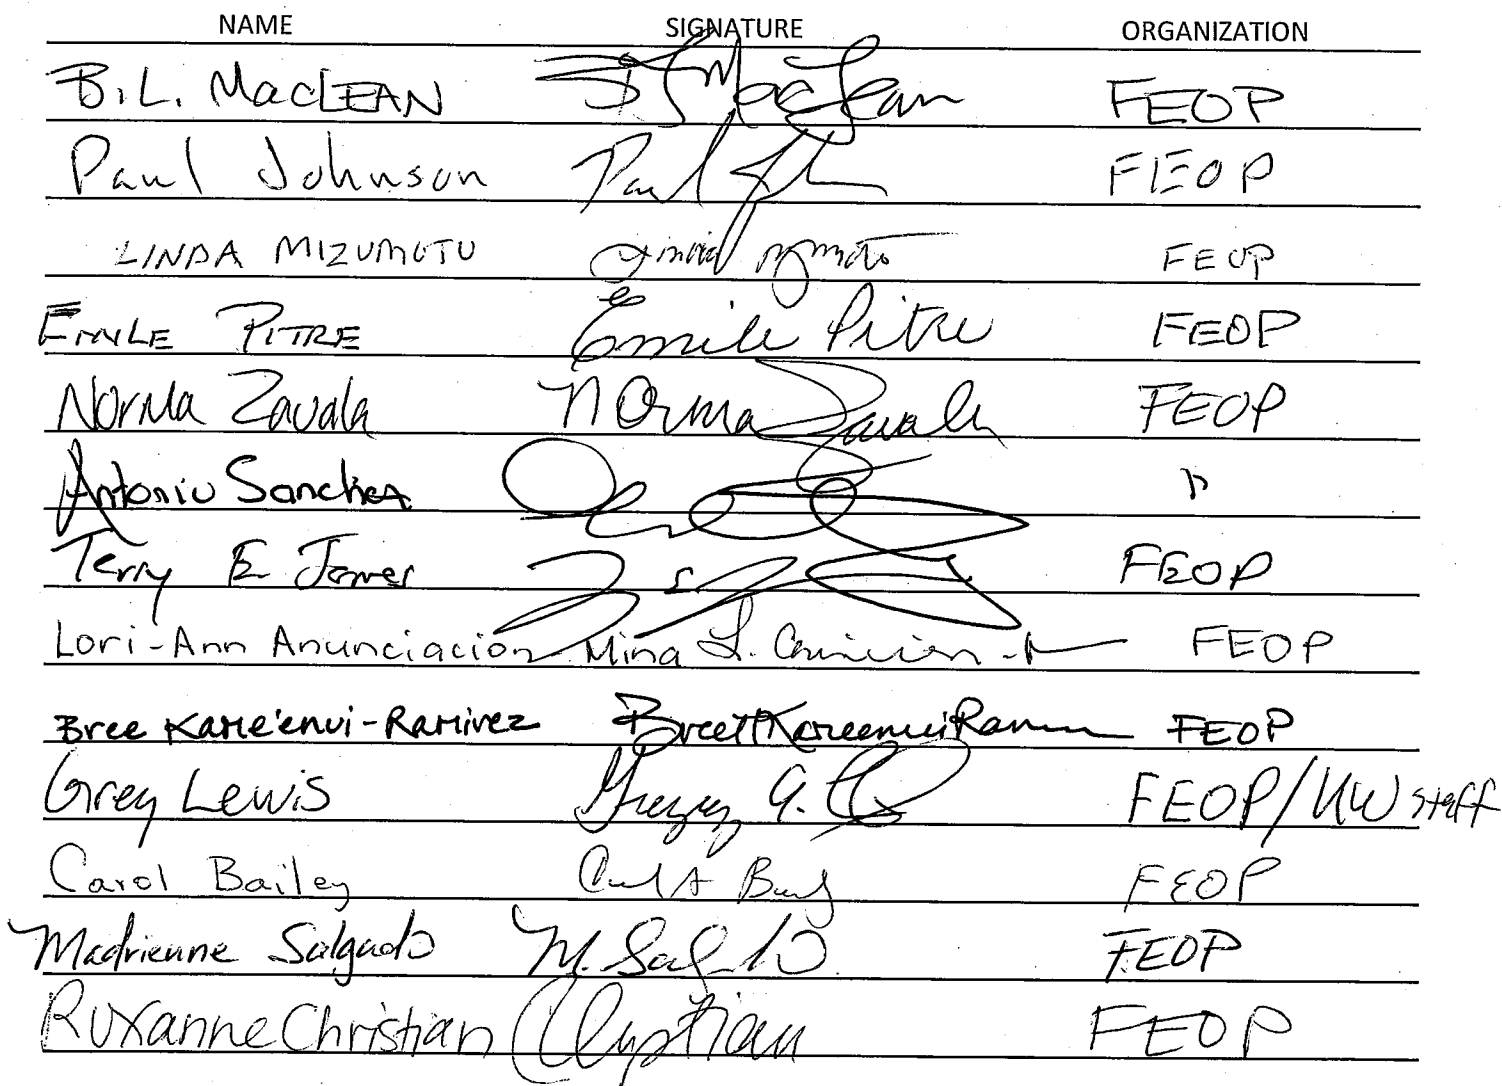 NAME SIGNATURE ORGANIZATION
B.L. MacLEAN B L MacLean FEOP
Paul Johnson Paul Joh FEOP
LINDA MIZUMOTO Linda Mizumoto FEOP
EMILE PITRE Emile Pitre FEOP
Norma Zavala Norma Zavala FEOP
Antonio Sanchez "
Terry E. Jones FEOP
Lori-Ann Anunciación Mina L. FEOP
Bree Kame'enui-Ramirez Bree Kame'enui Ram FEOP
Greg Lewis Gregory A. FEOP/UW staff
Carol Bailey Carol A Baily FEOP
Madrienne Salgado M. Salgado FEOP
Roxanne Christian Christian FEOP